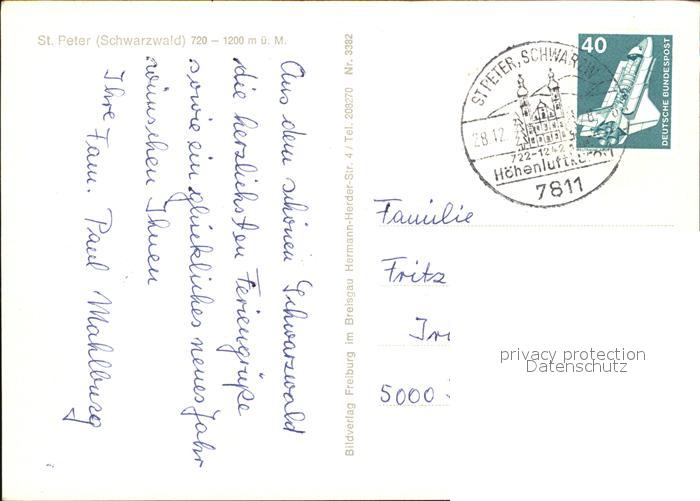 St. Peter (Schwarzwald) 720 – 1200 m ü. M.
Aus dem schönen Schwarzwald
die herzlichsten Feriengrüße
sowie ein glückliches neues Jahr
wünschen Ihnen
Ihre Fam. Paul Mahlburg
Bildverlag Freiburg im Breisgau Hermann-Herder-Str. 4 / Tel. 208270 Nr. 3382
ST. PETER, SCHWARZW
28.12.
722-1242
Höhenluftkurort
7811
40
DEUTSCHE BUNDESPOST
Familie
Fritz
5000
privacy protection
Datenschutz